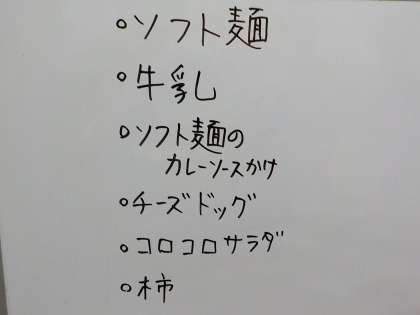 ○ソフト麺
○牛乳
○ソフト麺の
カレーソースかけ
○チーズドッグ
○コロコロサラダ
○柿